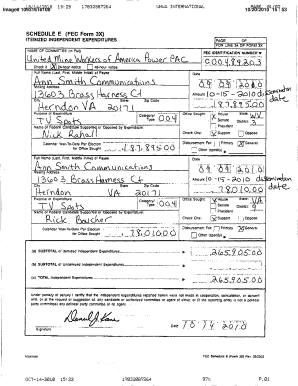 10/14/2010 15:23
UMWA INTERNATIONAL
SCHEDULE E (FEC Form 3X)
ITEMIZED INDEPENDENT EXPENDITURES
PAGE OF
FOR LINE 24 OF FORM 3X
NAME OF COMMITTEE (In Full)
United Mine Workers of America Power PAC
FEC IDENTIFICATION NUMBER
Check if 24-hour notice 48-hour notice
Full Name (Last, First, Middle Initial) of Payee
Ann Smith Communications
Date
Mailing Address
13603 Brass Harness Ct
Amount 10-15-2010 dissemination date
City State Zip Code
Herndon VA 20171
187,895.00
Purpose of Expenditure
TV Spots
Category/Type 004
Office Sought: House State: WV
Senate District: 3
President
Name of Federal Candidate Supported or Opposed by Expenditure:
Nick Rahall
Check One: Support Oppose
Calendar Year-To-Date Per Election for Office Sought
187,895.00
Disbursement For: Primary General
Other (specify)
Full Name (Last, First, Middle Initial) of Payee
Ann Smith Communications
Date
Mailing Address
13603 Brass Harness Ct
Amount 10-15-2010 dissemination date
City State Zip Code
Herndon VA 20171
78,010.00
Purpose of Expenditure
TV Spots
Category/Type 004
Office Sought: House State: VA
Senate District: 9
President
Name of Federal Candidate Supported or Opposed by Expenditure:
Rick Boucher
Check One: Support Oppose
Calendar Year-To-Date Per Election for Office Sought
78,010.00
Disbursement For: Primary General
Other (specify)
(a) SUBTOTAL of Itemized Independent Expenditures
265,905.00
(b) SUBTOTAL of Unitemized Independent Expenditures
(c) TOTAL Independent Expenditures
265,905.00
Under penalty of perjury I certify that the independent expenditures reported herein were not made in cooperation, consultation, or concert with, or at the request or suggestion of, any candidate or authorized committee or agent of either, or (if the reporting entity is not a political party committee) any political party committee or its agent.
Signature
Date 10 14 2010
FEC Schedule E (Form 3X)
OCT-14-2010 15:22
97%
P.01